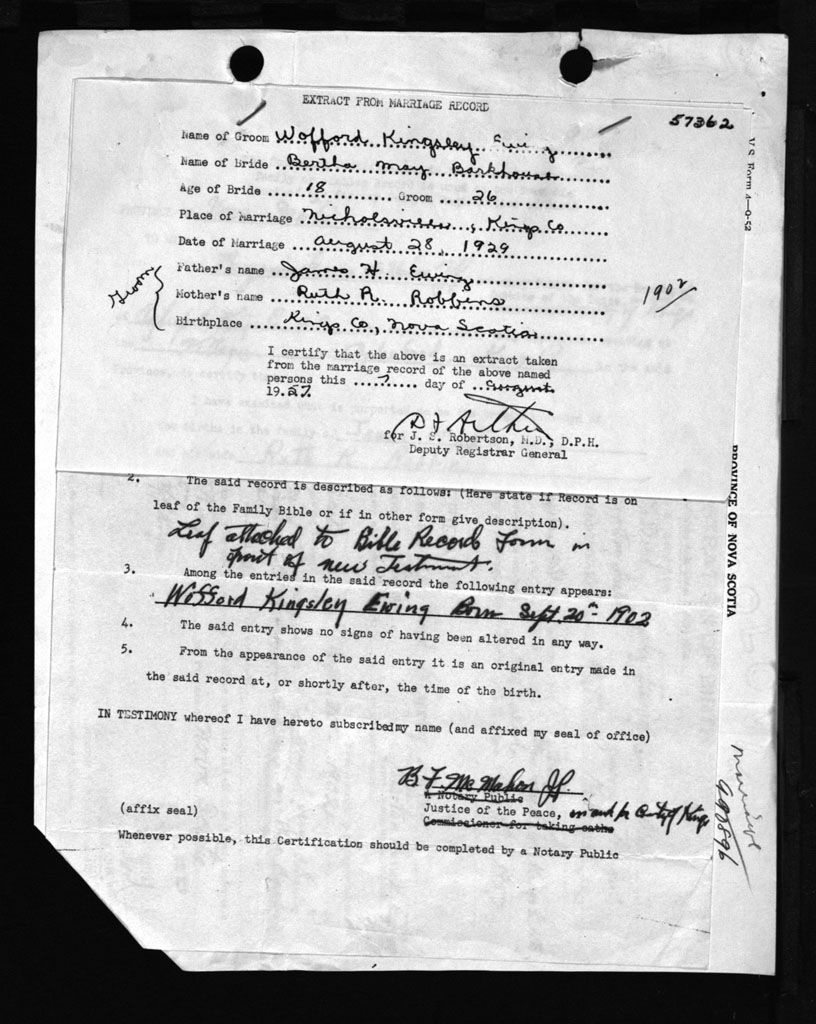 EXTRACT FROM MARRIAGE RECORD
57362
Name of Groom Wofford Kingsley Ewing
Name of Bride Bertha May Barkhouse
Age of Bride 18 Groom 26
Place of Marriage , Kings Co
Date of Marriage August 28, 1929
Groom
Father's name James H Ewing
Mother's name Ruth R. Robbins
1902
Birthplace Kings Co, Nova Scotia
I certify that the above is an extract taken
from the marriage record of the above named
persons this 7 day of August
1957.
for J. S. Robertson, M.D., D.P.H.
Deputy Registrar General
2. The said record is described as follows: (Here state if Record is on
leaf of the Family Bible or if in other form give description).
Leaf attached to Bible Record Form in
front of new Testament.
3. Among the entries in the said record the following entry appears:
Wofford Kingsley Ewing Born Sept. 20th 1902
4. The said entry shows no signs of having been altered in any way.
5. From the appearance of the said entry it is an original entry made in
the said record at, or shortly after, the time of the birth.
IN TESTIMONY whereof I have hereto subscribed my name (and affixed my seal of office)
B F. McMahon J.P.
A Notary Public
(affix seal)
Justice of the Peace, in and for County of Kings
Commissioner for taking oaths
Whenever possible, this Certification should be completed by a Notary Public
V.S. Form 4-9-52
PROVINCE OF NOVA SCOTIA
marriage